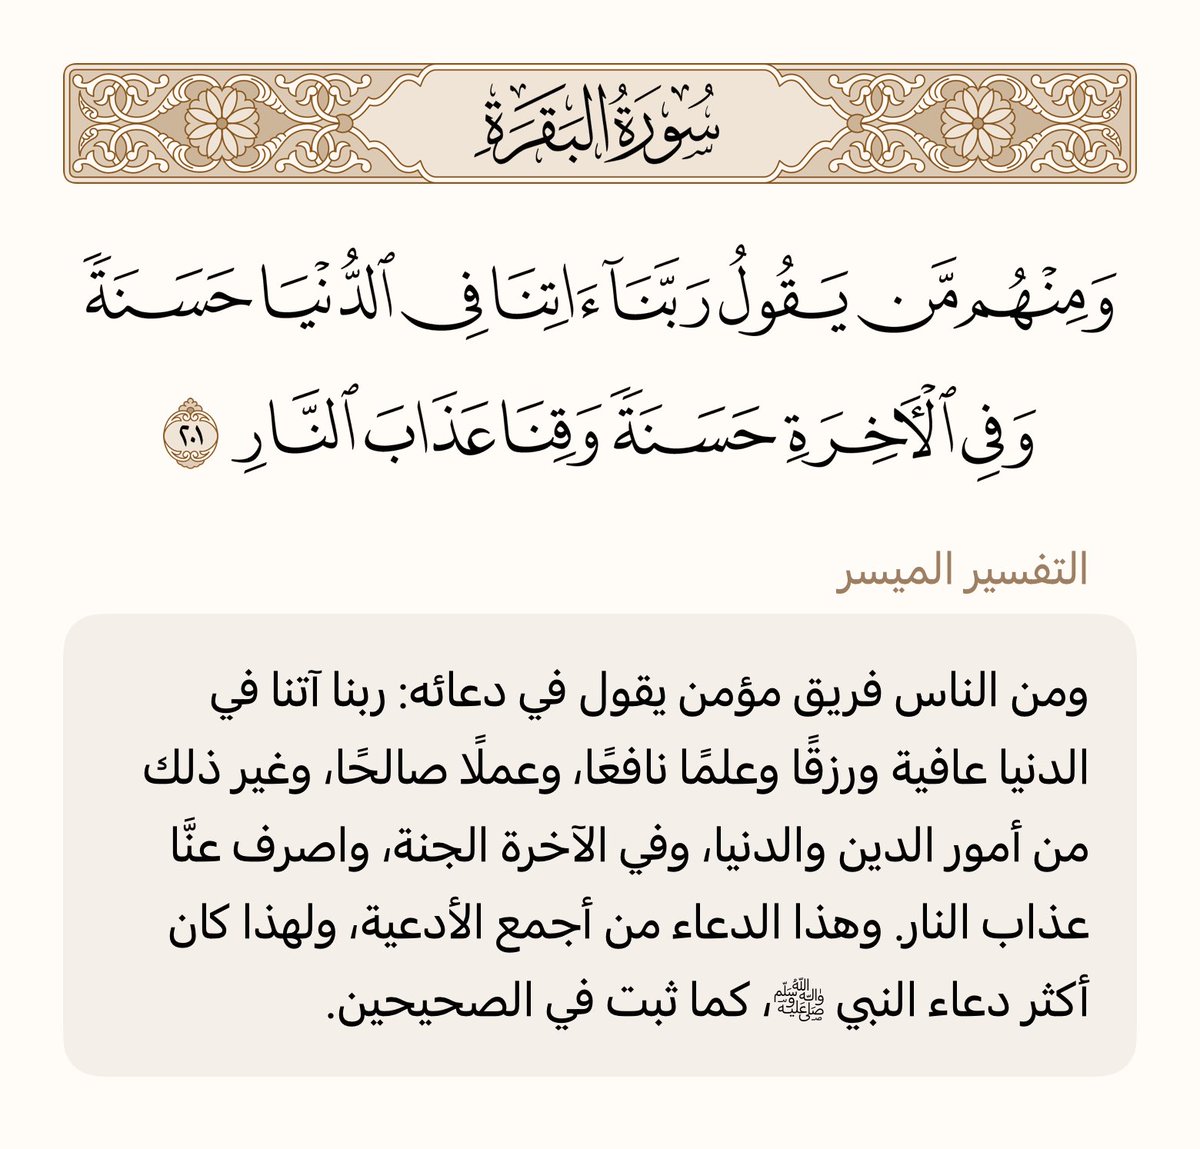 سُورَةُ البَقَرَةِ
وَمِنْهُم مَّن يَقُولُ رَبَّنَآ ءَاتِنَا فِى ٱلدُّنْيَا حَسَنَةً
وَفِى ٱلْـَٔاخِرَةِ حَسَنَةً وَقِنَا عَذَابَ ٱلنَّارِ ٢٠١
التفسير الميسر
ومن الناس فريق مؤمن يقول في دعائه: ربنا آتنا في
الدنيا عافية ورزقًا وعلمًا نافعًا، وعملًا صالحًا، وغير ذلك
من أمور الدين والدنيا، وفي الآخرة الجنة، واصرف عنَّا
عذاب النار. وهذا الدعاء من أجمع الأدعية، ولهذا كان
أكثر دعاء النبي ﷺ، كما ثبت في الصحيحين.